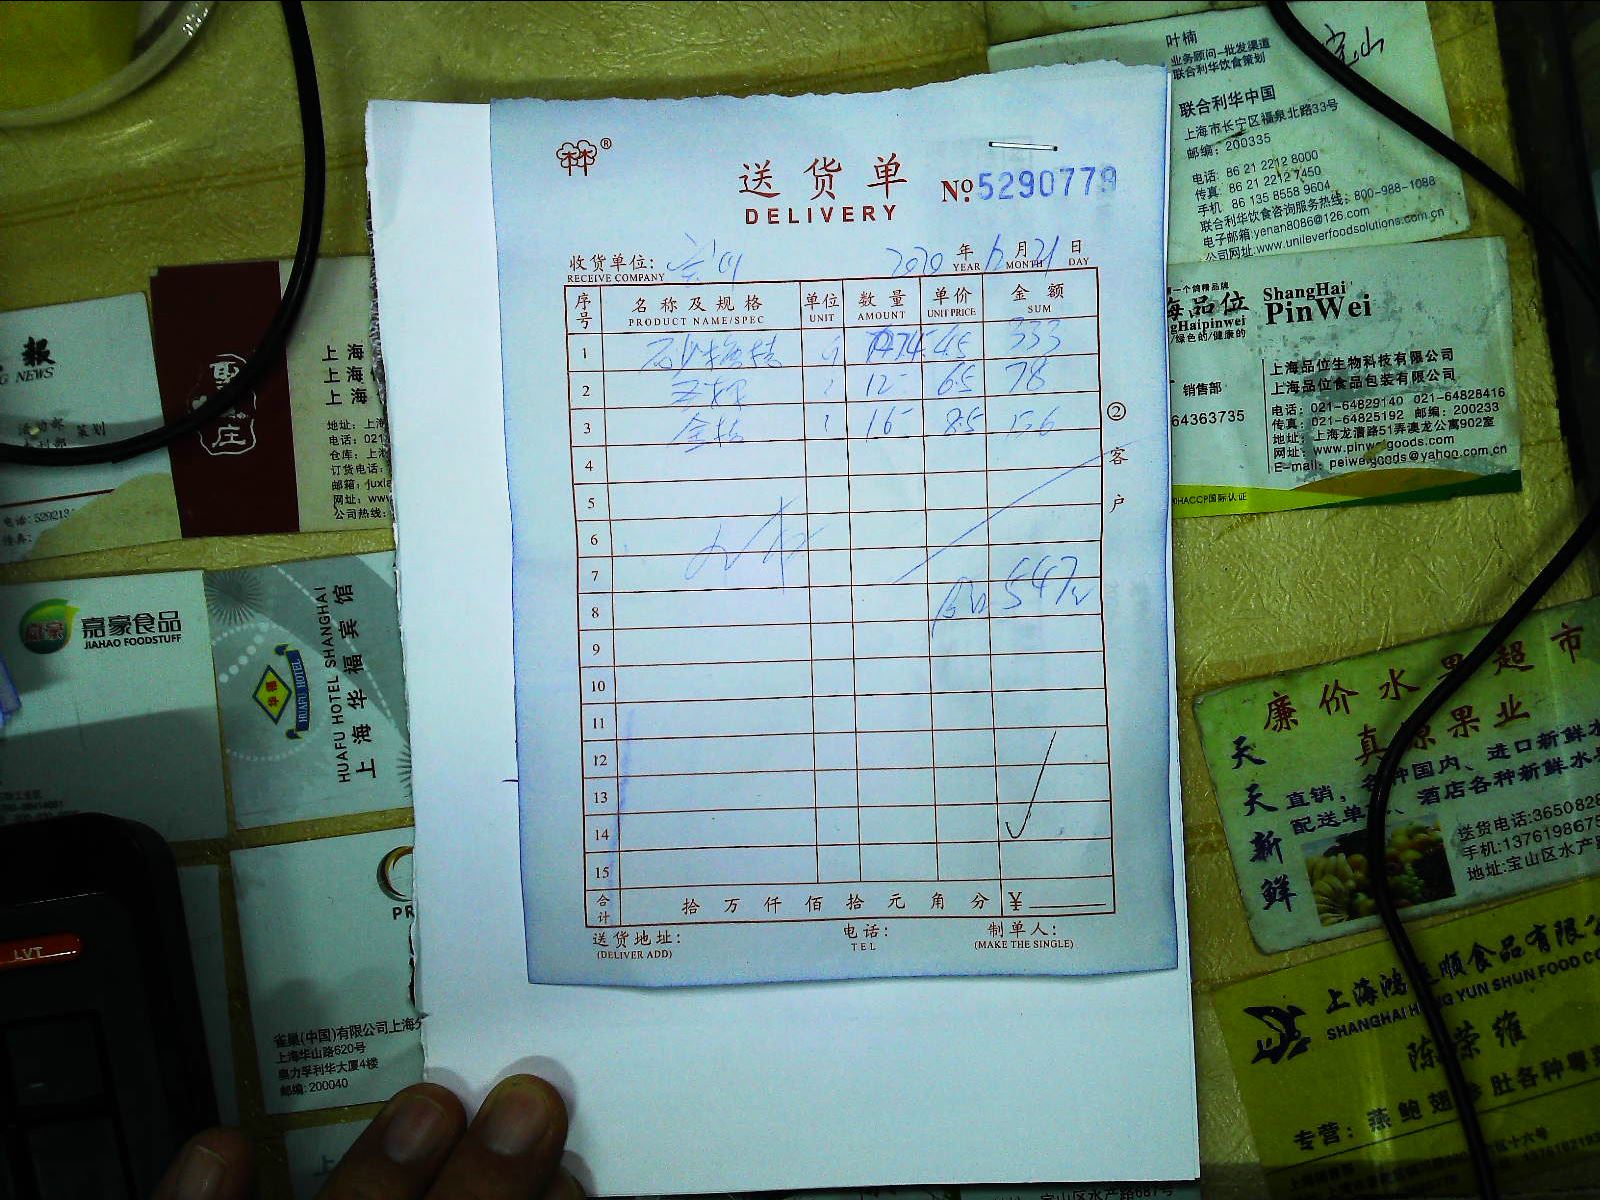 叶楠
业务顾问-批发渠道
联合利华饮食策划
宝山
联合利华中国
上海市长宁区福泉北路33号
邮编: 200335
电话: 86 21 2212 8000
传真: 86 21 2212 7450
手机: 86 135 8558 9604
联合利华饮食咨询服务热线: 800-988-1088
电子邮箱:yenan8086@126.com
公司网址:www.unileverfoodsolutions.com.cn
林®
送货单
DELIVERY
№:5290779
收货单位:
RECEIVE COMPANY
2020年12月21日
YEAR MONTH DAY
序号 名称及规格 单位 数量 单价 金额
PRODUCT NAME/SPEC UNIT AMOUNT UNIT PRICE SUM
1 74 4.5 333
2 12 6.5 78
3 16 8.5 136
4
5
6
7
8 547
9
10
11
12
13
14
15
合计 拾万仟佰拾元角分 ¥
②客户
送货地址:
(DELIVER ADD)
电话:
TEL
制单人:
(MAKE THE SINGLE)
第一个鸽精品牌
海品位
gHaipinwei
绿色的/健康的
ShangHai
PinWei
销售部
64363735
上海品位生物科技有限公司
上海品位食品包装有限公司
电话: 021-64829140 021-64828416
传真: 021-64825192 邮编: 200233
地址: 上海龙漕路51弄澳龙公寓902室
网址: www.pinweigoods.com
E-mail: peiweigoods@yahoo.com.cn
HACCP国际认证
报
NEWS
策划
电话:
传真:
庄
上海
上海
上海
地址: 上海
电话: 021
仓库: 上
订货电话:
邮箱: juxia
网址: www
公司热线:
嘉豪食品
JIAHAO FOODSTUFF
华福
HUAFU HOTEL
HUAFU HOTEL SHANGHAI
上海华福宾馆
LVT
PR
雀巢(中国)有限公司上海分
上海华山路620号
奥力孚利华大厦4楼
邮编: 200040
廉价水果超市
真源果业
天天新鲜
直销，各种国内、进口新鲜水
配送单、酒店各种新鲜水果
送货电话:3650828
手机:1376198675
地址:宝山区水产路
上海鸿运顺食品有限公
SHANGHAI HONG YUN SHUN FOOD CO
陈荣维
专营: 燕鲍翅参肚各种粤菜
宝山区水产路687号